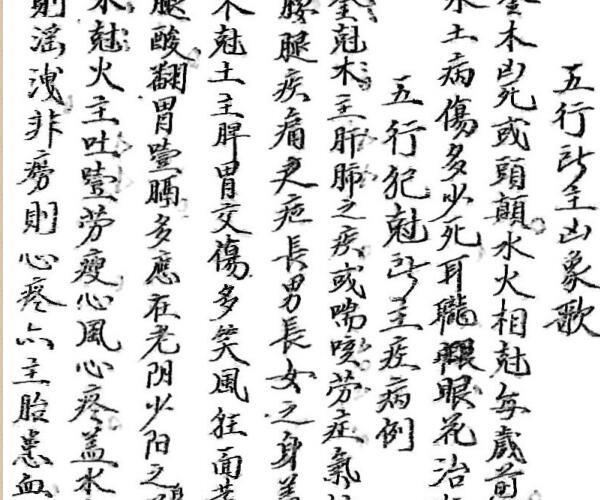 五行所主凶象歌
金木凶死或頭顛水火相尅每歲前
水土病傷多少死耳瓏眼眼花治
五行犯尅所主疾病例
金尅木主肝肺之疾或喘咳劳症氣
腰腿疾痛及疤長男長女之身
木尅土主脾胃交傷多笑風狂面黃
腿酸翻胃噎膈多應在老阴少阳之
水尅火主吐噎劳瘦心風心疼盖水
則淫洩非痨則心疼亦主胎患血